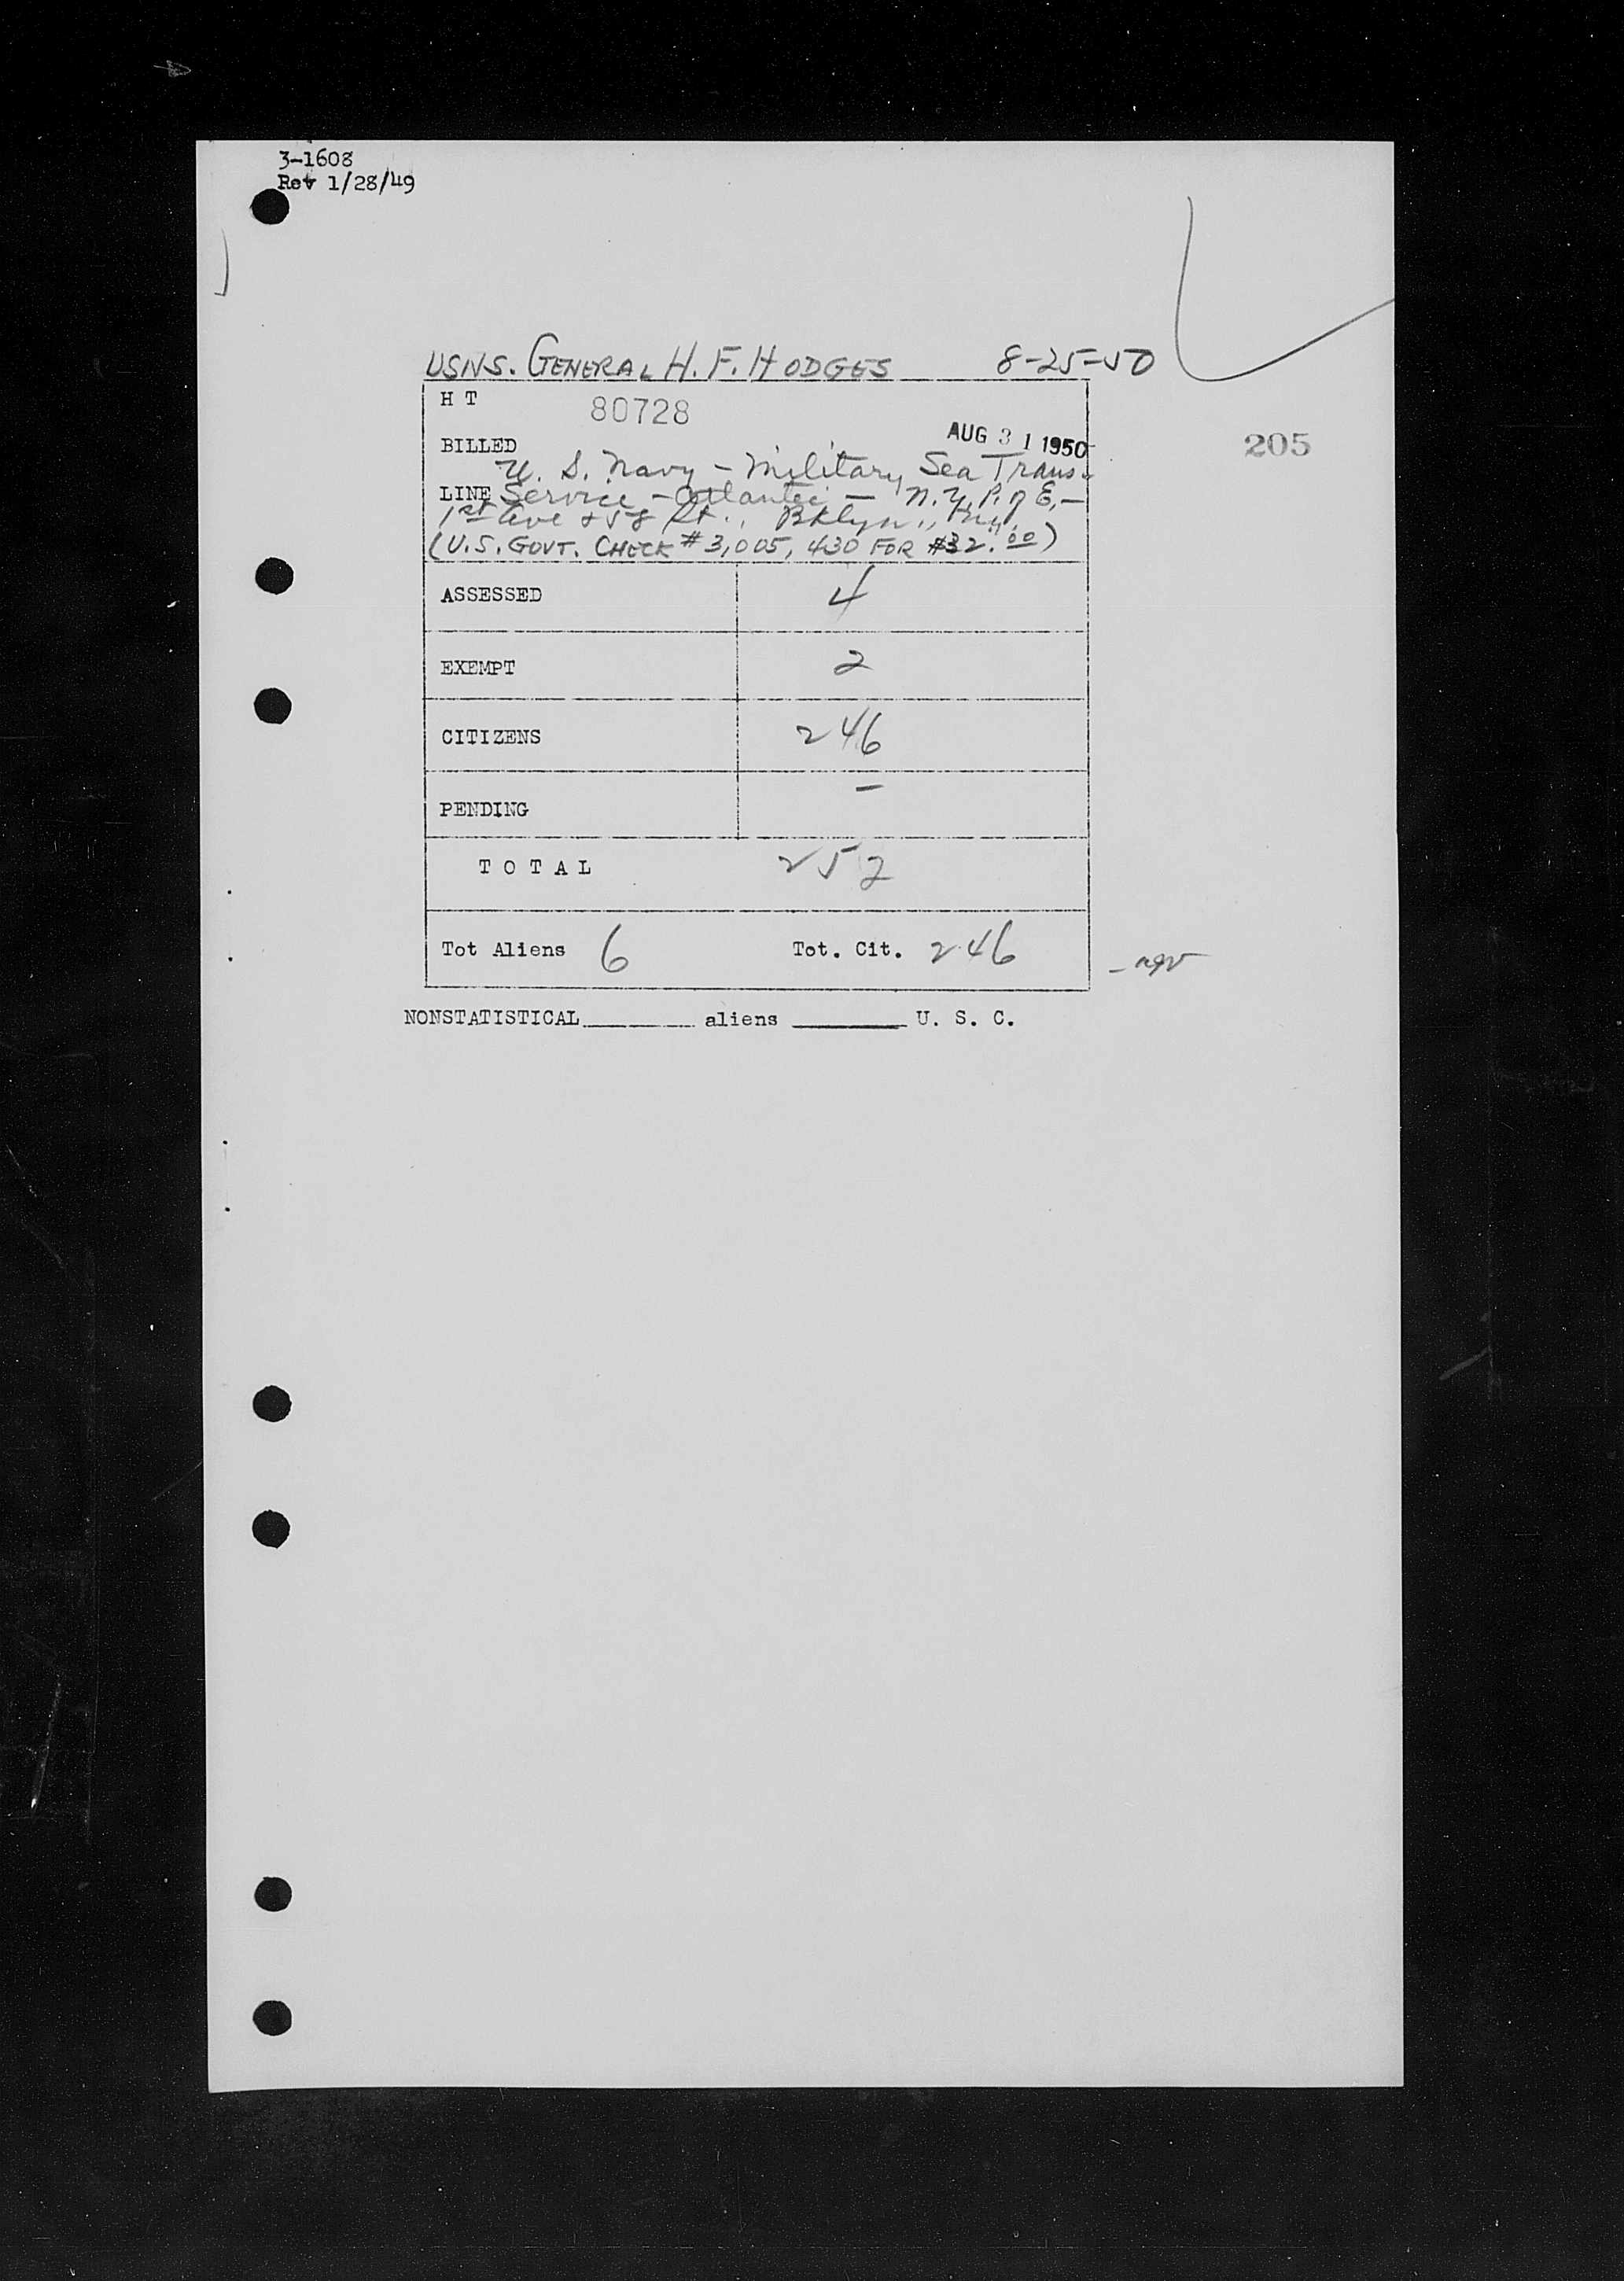 3-1608
Rev 1/28/49
USNS. GENERAL H. F. HODGES 8-25-50
H T 80728
BILLED AUG 31 1950
205
U. S. Navy - Military Sea Trans.
LINE Service - Atlantic - N.Y. P. of E. -
1st Ave & 58 St., Bklyn., N.Y.
(U.S. GOVT. CHECK #3,005,430 FOR $32.00)
ASSESSED 4
EXEMPT 2
CITIZENS 246
PENDING -
T O T A L 252
Tot Aliens 6 Tot. Cit. 246
NONSTATISTICAL________ aliens ________ U. S. C.